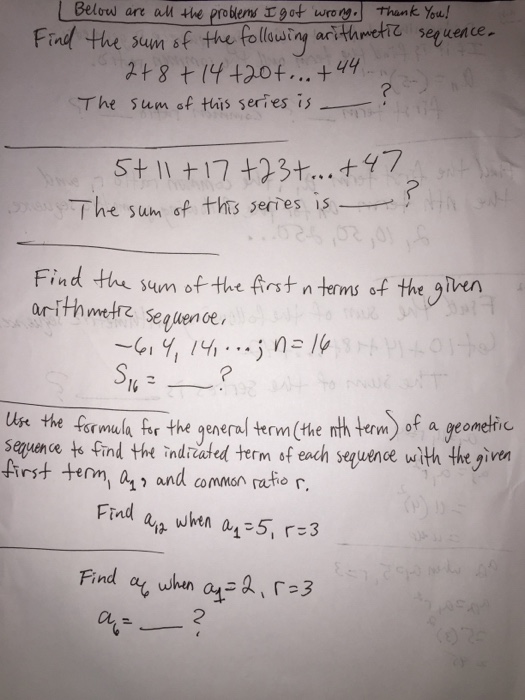 Below are all the problems I got wrong. Thank You!
Find the sum of the following arithmetic sequence.
2+8+14+20+...+44
The sum of this series is ___?
5+11+17+23+...+47
The sum of this series is ___?
Find the sum of the first n terms of the given
arithmetic sequence.
-6, 4, 14, ...; n=16
S₁₆ = ___?
Use the formula for the general term (the nth term) of a geometric
sequence to find the indicated term of each sequence with the given
first term, a₁, and common ratio r.
Find a₁₂ when a₁=5, r=3
Find a₆ when a₁=2, r=3
a₆= ___?